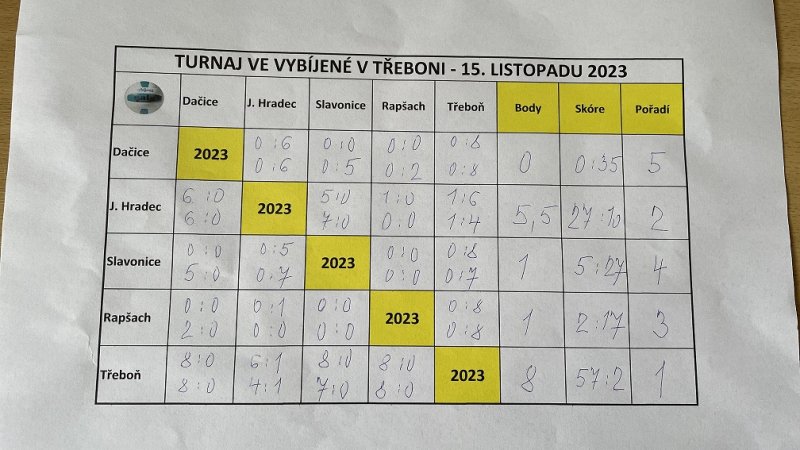 TURNAJ VE VYBÍJENÉ V TŘEBONI - 15. LISTOPADU 2023
Dačice J. Hradec Slavonice Rapšach Třeboň Body Skóre Pořadí
Dačice 2023 0:6 0:0 0:0 0:8 0 0:35 5
0:6 0:5 0:2 0:8
J. Hradec 6:0 2023 5:0 1:0 1:6 5,5 27:10 2
6:0 7:0 0:0 1:4
Slavonice 0:0 0:5 2023 0:0 0:8 1 5:27 4
5:0 0:7 0:0 0:7
Rapšach 0:0 0:1 0:0 2023 0:8 1 2:17 3
2:0 0:0 0:0 0:8
Třeboň 8:0 6:1 8:0 8:0 2023 8 57:2 1
8:0 4:1 7:0 8:0